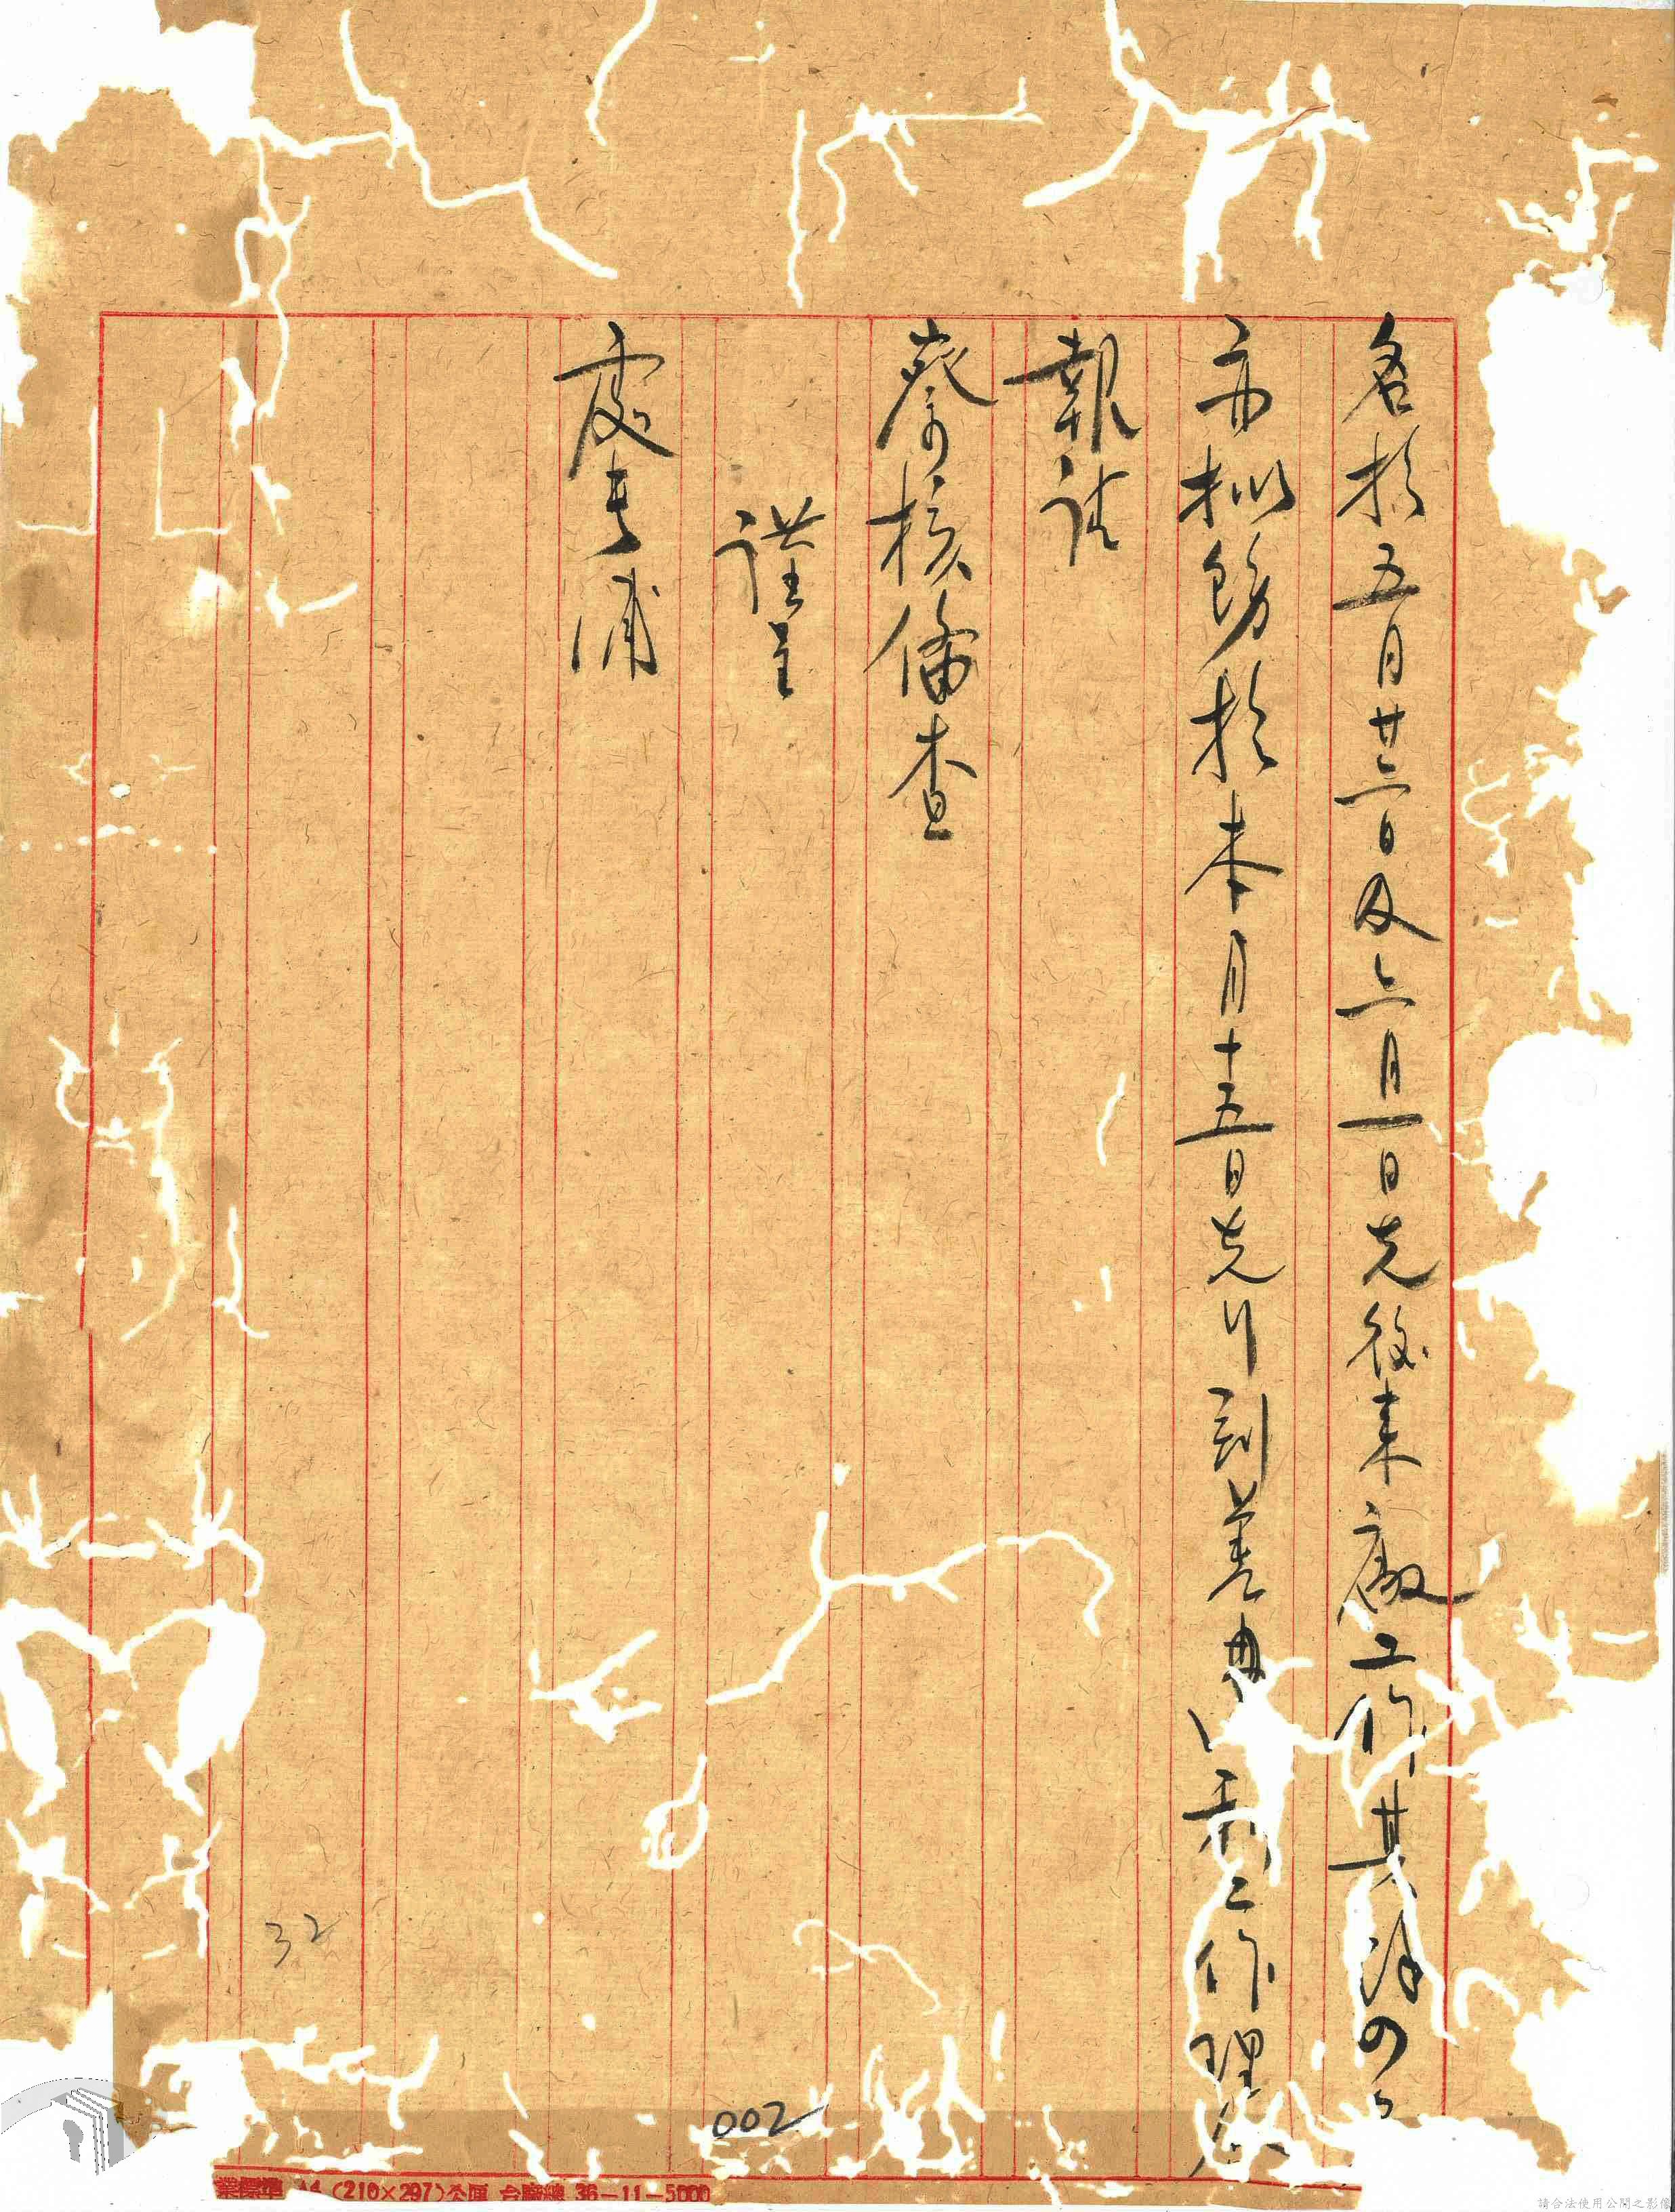 名於五月廿三日及六月一日先後來廠工作其餘四
亦擬飭於本月十五日先行到差由 素工作理合
報請
察核備查
謹呈
處長浦
32
002
業標準 A4 (210×297)公厘 台 36-11-5000
請合法使用公開之影像